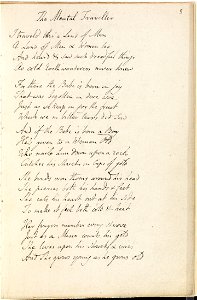 5
The Mental Traveller
I traveld thro' a Land of Men
A Land of Men & Women too
And heard & saw such dreadful things
As cold Earth wanderers never knew
For there the Babe is born in joy
That was begotten in dire woe
Just as we Reap in joy the fruit
Which we in bitter tears did Sow
And if the Babe is born a Boy
He's given to a Woman Old
Who nails him down upon a rock
Catches his Shrieks in Cups of gold
She binds iron thorns around his head
She pierces both his hands & feet
She cuts his heart out at his side
To make it feel both cold & heat
Her fingers number every Nerve
Just as a Miser counts his gold
She lives upon his Shrieks & cries
And She grows young as he grows old